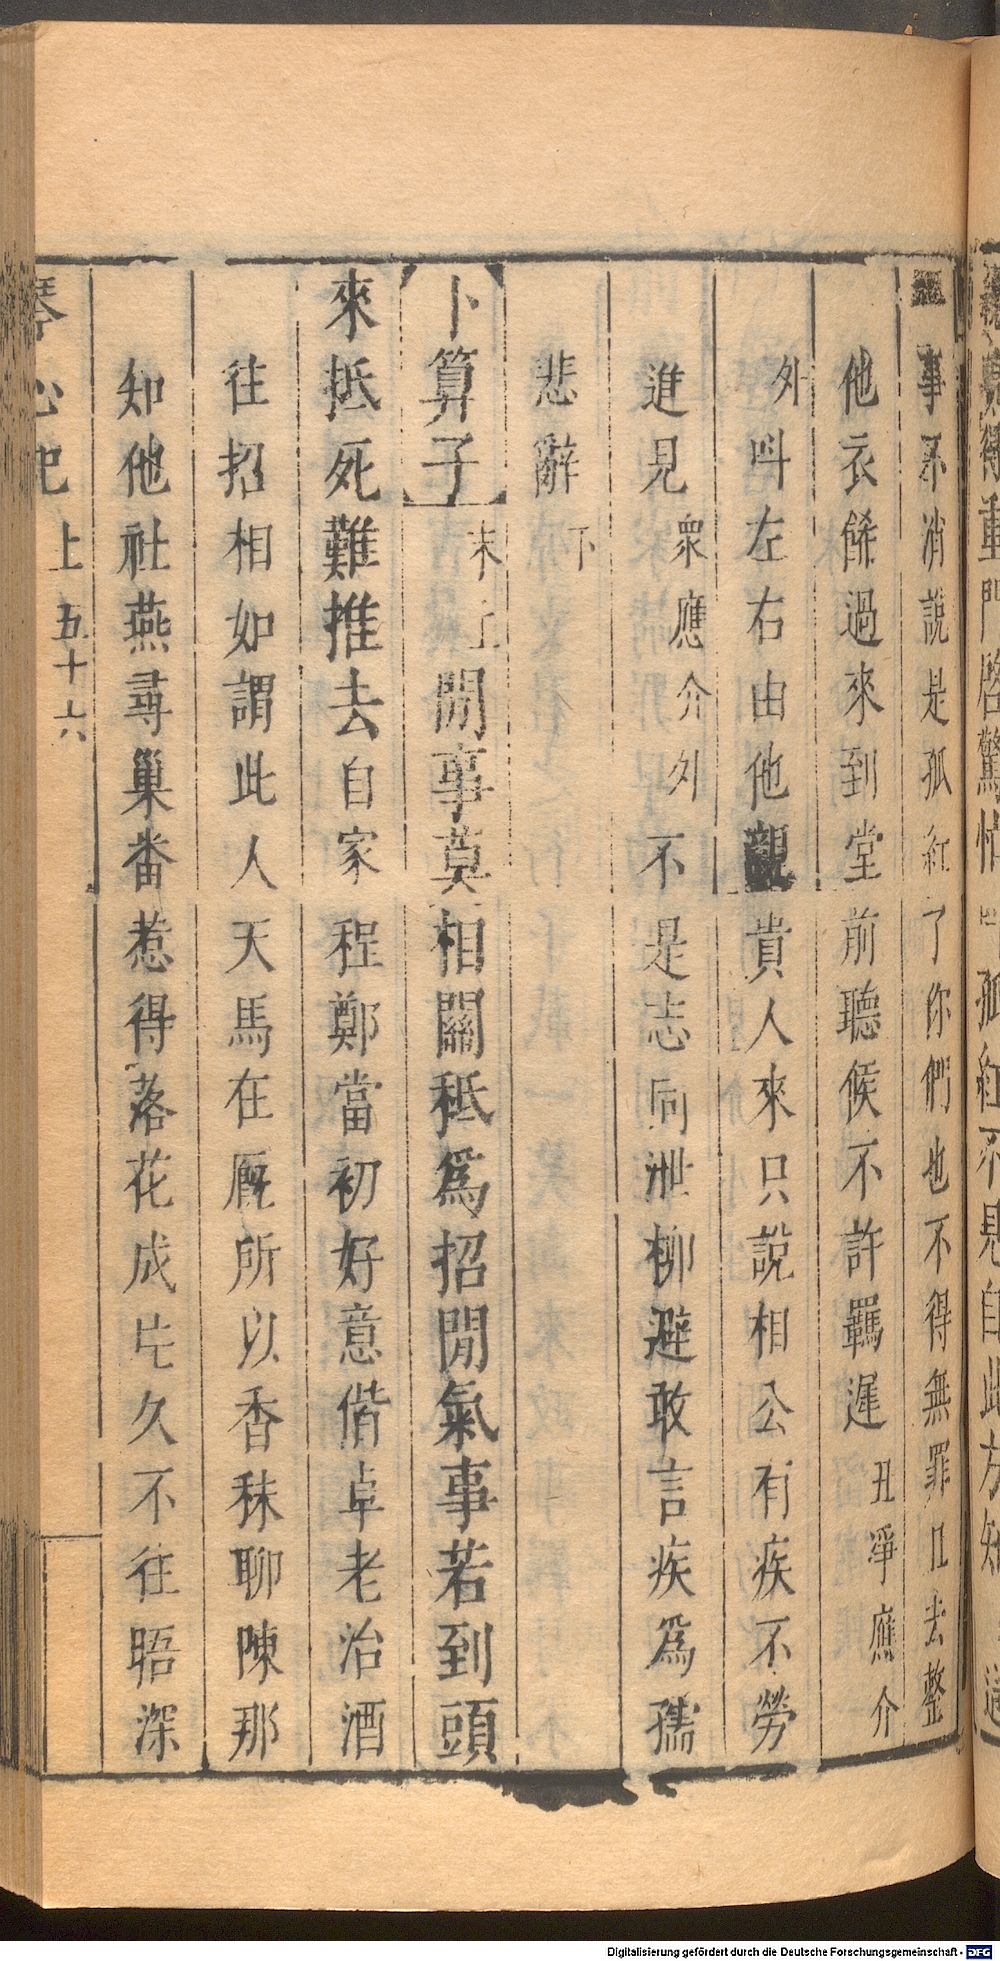 事不消說是孤紅了你們也不得無罪且去整
他衣餙過來到堂前聽候不許羈遲丑凈應介
外呌左右由他親貴人來只說相公有疾不勞
進見衆應介外不是志同泄柳避敢言疾為孺
悲辭下
卜算子末上閒事莫相關秪爲招閒氣事若到頭
來抵死難推去自家程鄭當初好意偕卓老治酒
往招相如謂此人天馬在厩所以香秣聊陳那
知他社燕尋巢番惹得落花成片久不徃晤深
琴心記 上 五十六
重門啓驚
孤紅不
自此方知
Digitalisierung gefördert durch die Deutsche Forschungsgemeinschaft - DFG